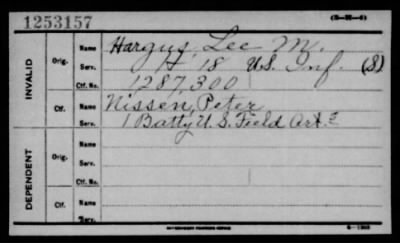 1253157
(3—28—6)
INVALID
Orig.
Name
Hargus, Lee M.
Serv.
H 18 U.S. Inf. (S)
Ctf. No.
1287,300
Ctf.
Name
Nissen, Peter
Serv.
1 Batty U.S. Field Art
DEPENDENT
Orig.
Name
Serv.
Ctf. No.
Ctf.
Name
Serv.